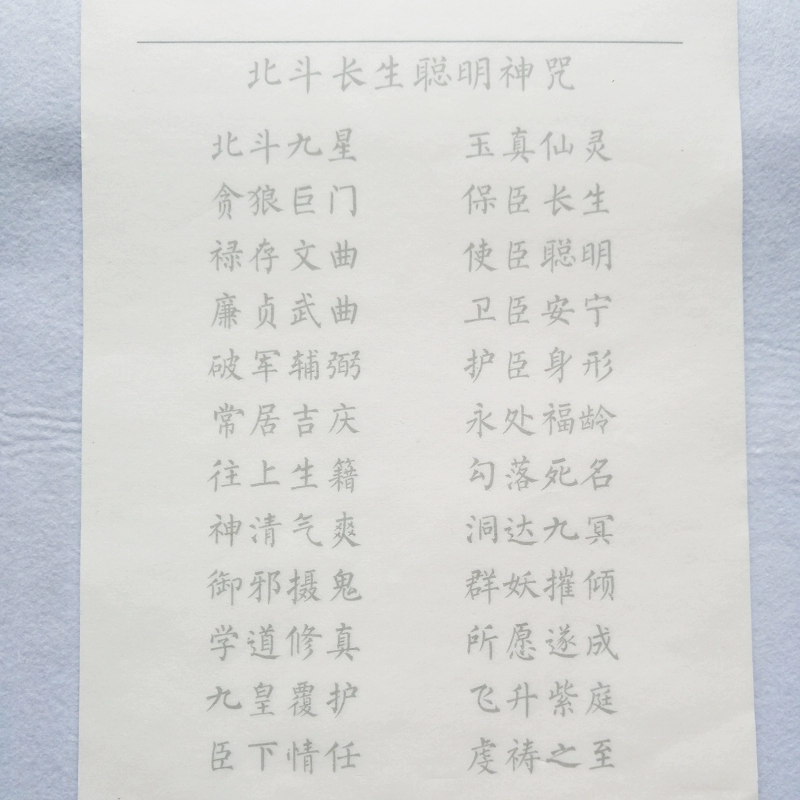 北斗长生聪明神咒
北斗九星 玉真仙灵
贪狼巨门 保臣长生
禄存文曲 使臣聪明
廉贞武曲 卫臣安宁
破军辅弼 护臣身形
常居吉庆 永处福龄
往上生籍 勾落死名
神清气爽 洞达九冥
御邪摄鬼 群妖摧倾
学道修真 所愿遂成
九皇覆护 飞升紫庭
臣下情任 虔祷之至